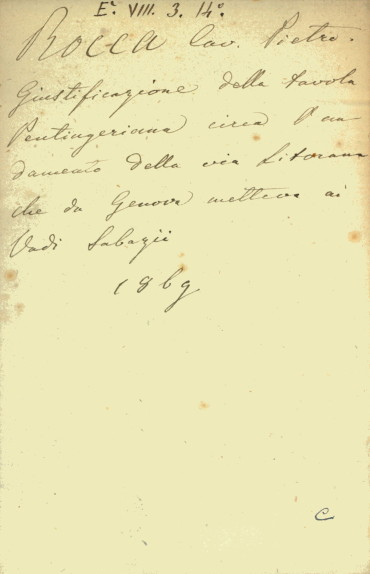 Eª. VIII. 3. 14º.
ROCCA Cav. Pietro.
Giustificazione della tavola
Pentingeriana circa l'an
damento della via Litorana
che da Genova metteva ai
Vadi Sabazii
1869
C